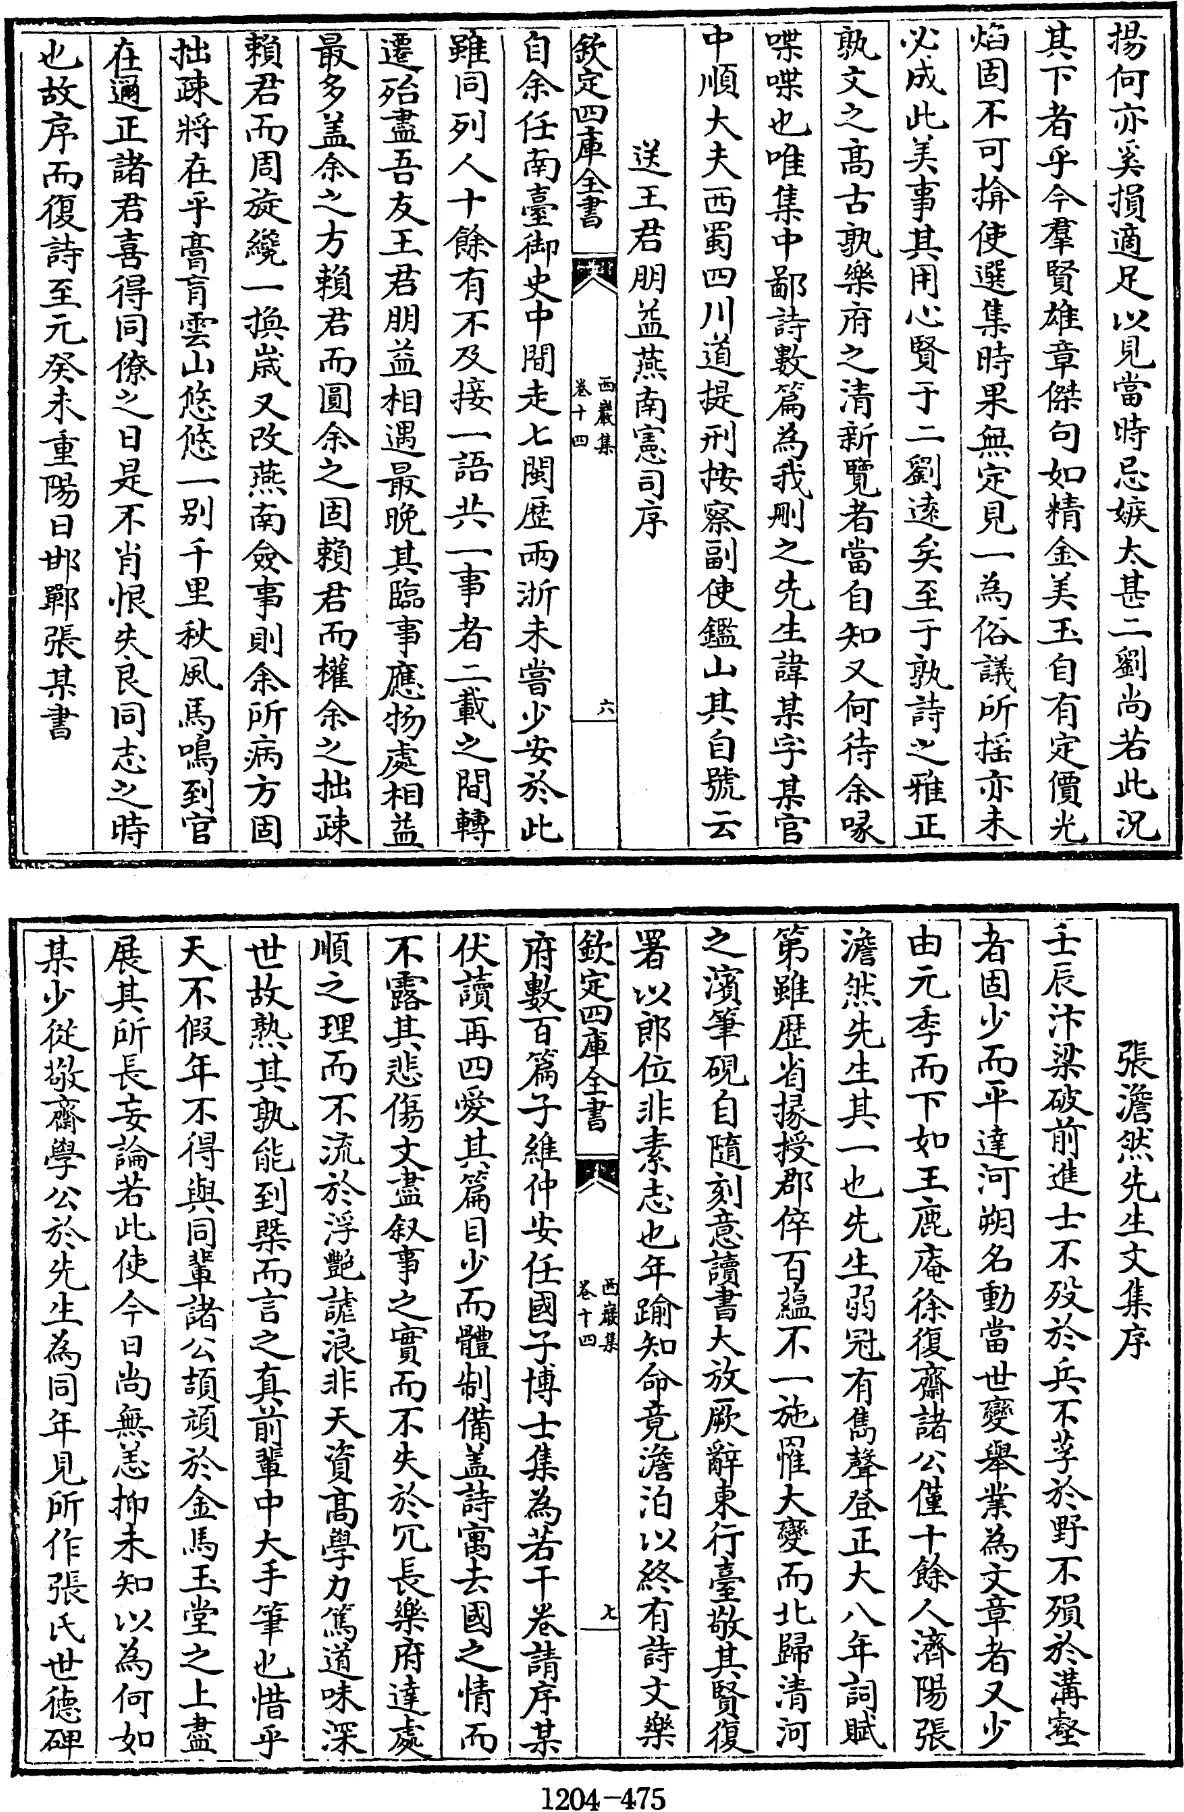 揚何亦奚損適足以見當時忌嫉太甚二劉尚若此況
其下者乎今羣賢雄章傑句如精金美玉自有定價光
焰固不可揜使選集時果無定見一為俗議所揺亦未
必成此美事其用心賢于二劉逺矣至于孰詩之雅正
孰文之髙古孰樂府之清新覽者當自知又何待余喙
喋喋也唯集中鄙詩數篇為我刪之先生諱某字某官
中順大夫西蜀四川道提刑按察副使鑑山其自號云
送王君朋益燕南憲司序
欽定四庫全書
西巖集
卷十四
六
自余任南臺御史中間走七閩歴兩浙未嘗少安於此
雖同列人十餘有不及接一語共一事者二載之間轉
遷殆盡吾友王君朋益相遇最晚其臨事應揚處相益
最多葢余之方賴君而圓余之固賴君而權余之拙疎
賴君而周旋纔一換歳又改燕南僉事則余所病方固
拙疎將在乎膏肓雲山悠悠一别千里秋風馬鳴到官
在邇正諸君喜得同僚之日是不肖恨失良同志之時
也故序而復詩至元癸未重陽日邯鄲張某書
張澹然先生文集序
壬辰汴梁破前進士不歿於兵不莩於野不殞於溝壑
者固少而平達河朔名動當世變舉業為文章者又少
由元季而下如王鹿庵徐復齋諸公僅十餘人濟陽張
澹然先生其一也先生弱冠有雋聲登正大八年詞賦
第雖歴省掾授郡倅百藴不一施罹大變而北歸清河
之濱筆硯自隨刻意讀書大放厥辭東行臺敬其賢復
署以郎位非素志也年踰知命竟澹泊以終有詩文樂
欽定四庫全書
西巖集
卷十四
七
府數百篇子維仲安任國子博士集為若干卷請序某
伏讀再四愛其篇目少而體制備葢詩寓去國之情而
不露其悲傷文盡叙事之實而不失於冗長樂府達處
順之理而不流於浮艷謔浪非天資髙學力篤道味深
世故熟其孰能到槩而言之真前輩中大手筆也惜乎
天不假年不得與同輩諸公頡頏於金馬玉堂之上盡
展其所長妄論若此使今日尚無恙抑未知以為何如
某少從敬齋學公於先生為同年見所作張氏世徳碑
1204-475